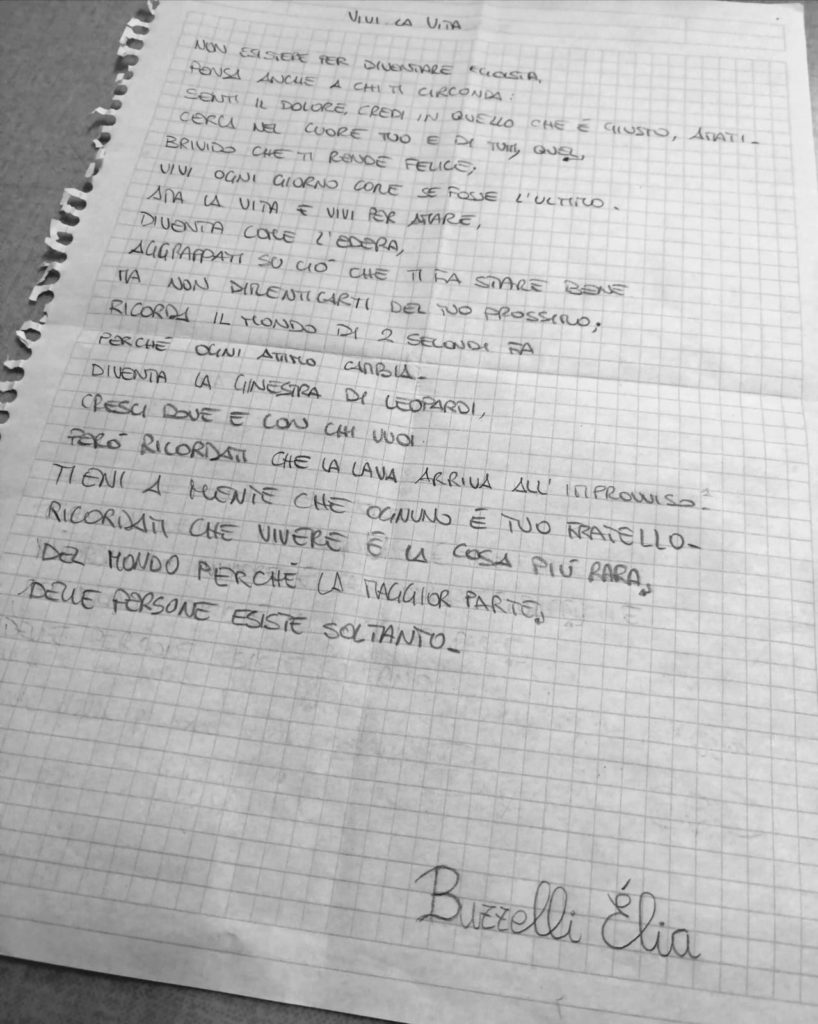 VIVI LA VITA
NON ESISTERE PER DIVENTARE EGOISTA,
PENSA ANCHE A CHI TI CIRCONDA:
SENTI IL DOLORE, CREDI IN QUELLO CHE È GIUSTO, AMATI-
CERCA NEL CUORE TUO E DI TUTTI, QUEL,
BRIVIDO CHE TI RENDE FELICE;
VIVI OGNI GIORNO COME SE FOSSE L'ULTIMO.
AMA LA VITA E VIVI PER AMARE,
DIVENTA COME L'EDERA,
AGGRAPPATI SU CIÒ CHE TI FA STARE BENE
MA NON DIMENTICARTI DEL TUO PROSSIMO;
RICORDA IL MONDO DI 2 SECONDI FA
PERCHÉ OGNI ATTIMO CAMBIA-
DIVENTA LA GINESTRA DI LEOPARDI,
CRESCI DOVE E CON CHI VUOI
PERÓ RICORDATI CHE LA LAVA ARRIVA ALL'IMPROVVISO-
TIENI A MENTE CHE OGNUNO È TUO FRATELLO-
RICORDATI CHE VIVERE È LA COSA PIÚ RARA,
DEL MONDO PERCHÉ LA MAGGIOR PARTE,
DELLE PERSONE ESISTE SOLTANTO-
Buzzelli Élia